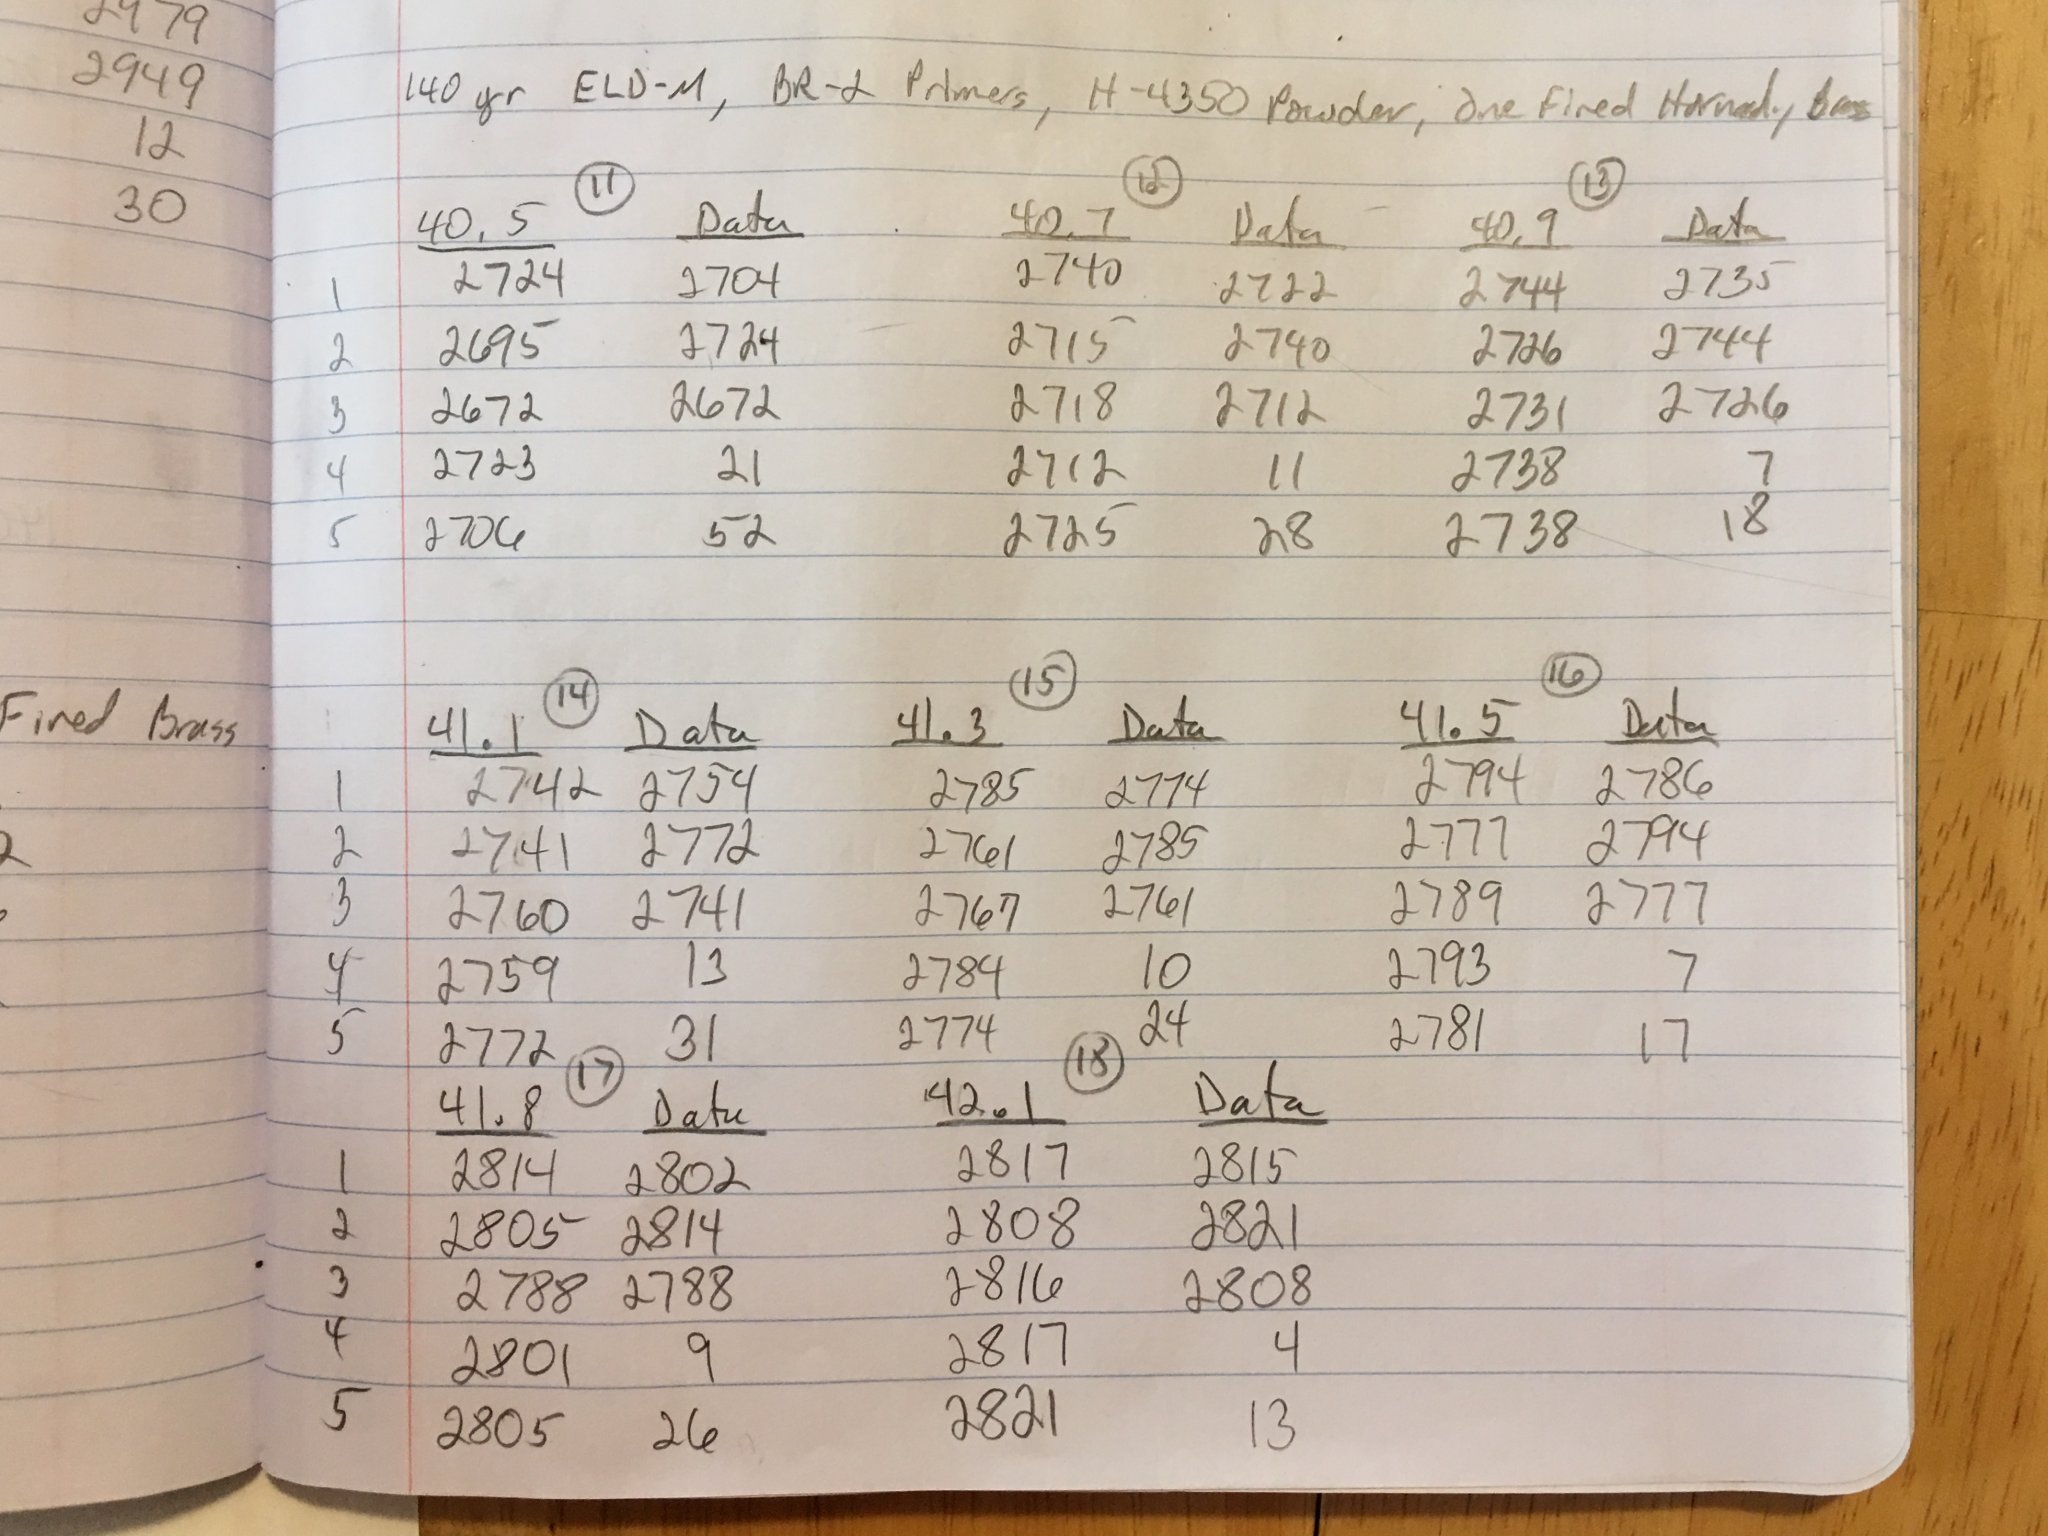 2979
2949
12
30
Fired Brass
2
140 gr ELD-M, BR-2 Primers, H-4350 Powder, One Fired Hornady Brass
40.5 11 Data 40.7 12 Data 40.9 13 Data
1 2724 2704 2740 2722 2744 2735
2 2695 2724 2715 2740 2726 2744
3 2672 2672 2718 2712 2731 2726
4 2723 21 2712 11 2738 7
5 2706 52 2725 28 2738 18
41.1 14 Data 41.3 15 Data 41.5 16 Data
1 2742 2754 2785 2774 2794 2786
2 2741 2772 2761 2785 2777 2794
3 2760 2741 2767 2761 2789 2777
4 2759 13 2784 10 2793 7
5 2772 31 2774 24 2781 17
41.8 17 Data 42.1 18 Data
1 2814 2802 2817 2815
2 2805 2814 2808 2821
3 2788 2788 2816 2808
4 2801 9 2817 4
5 2805 26 2821 13